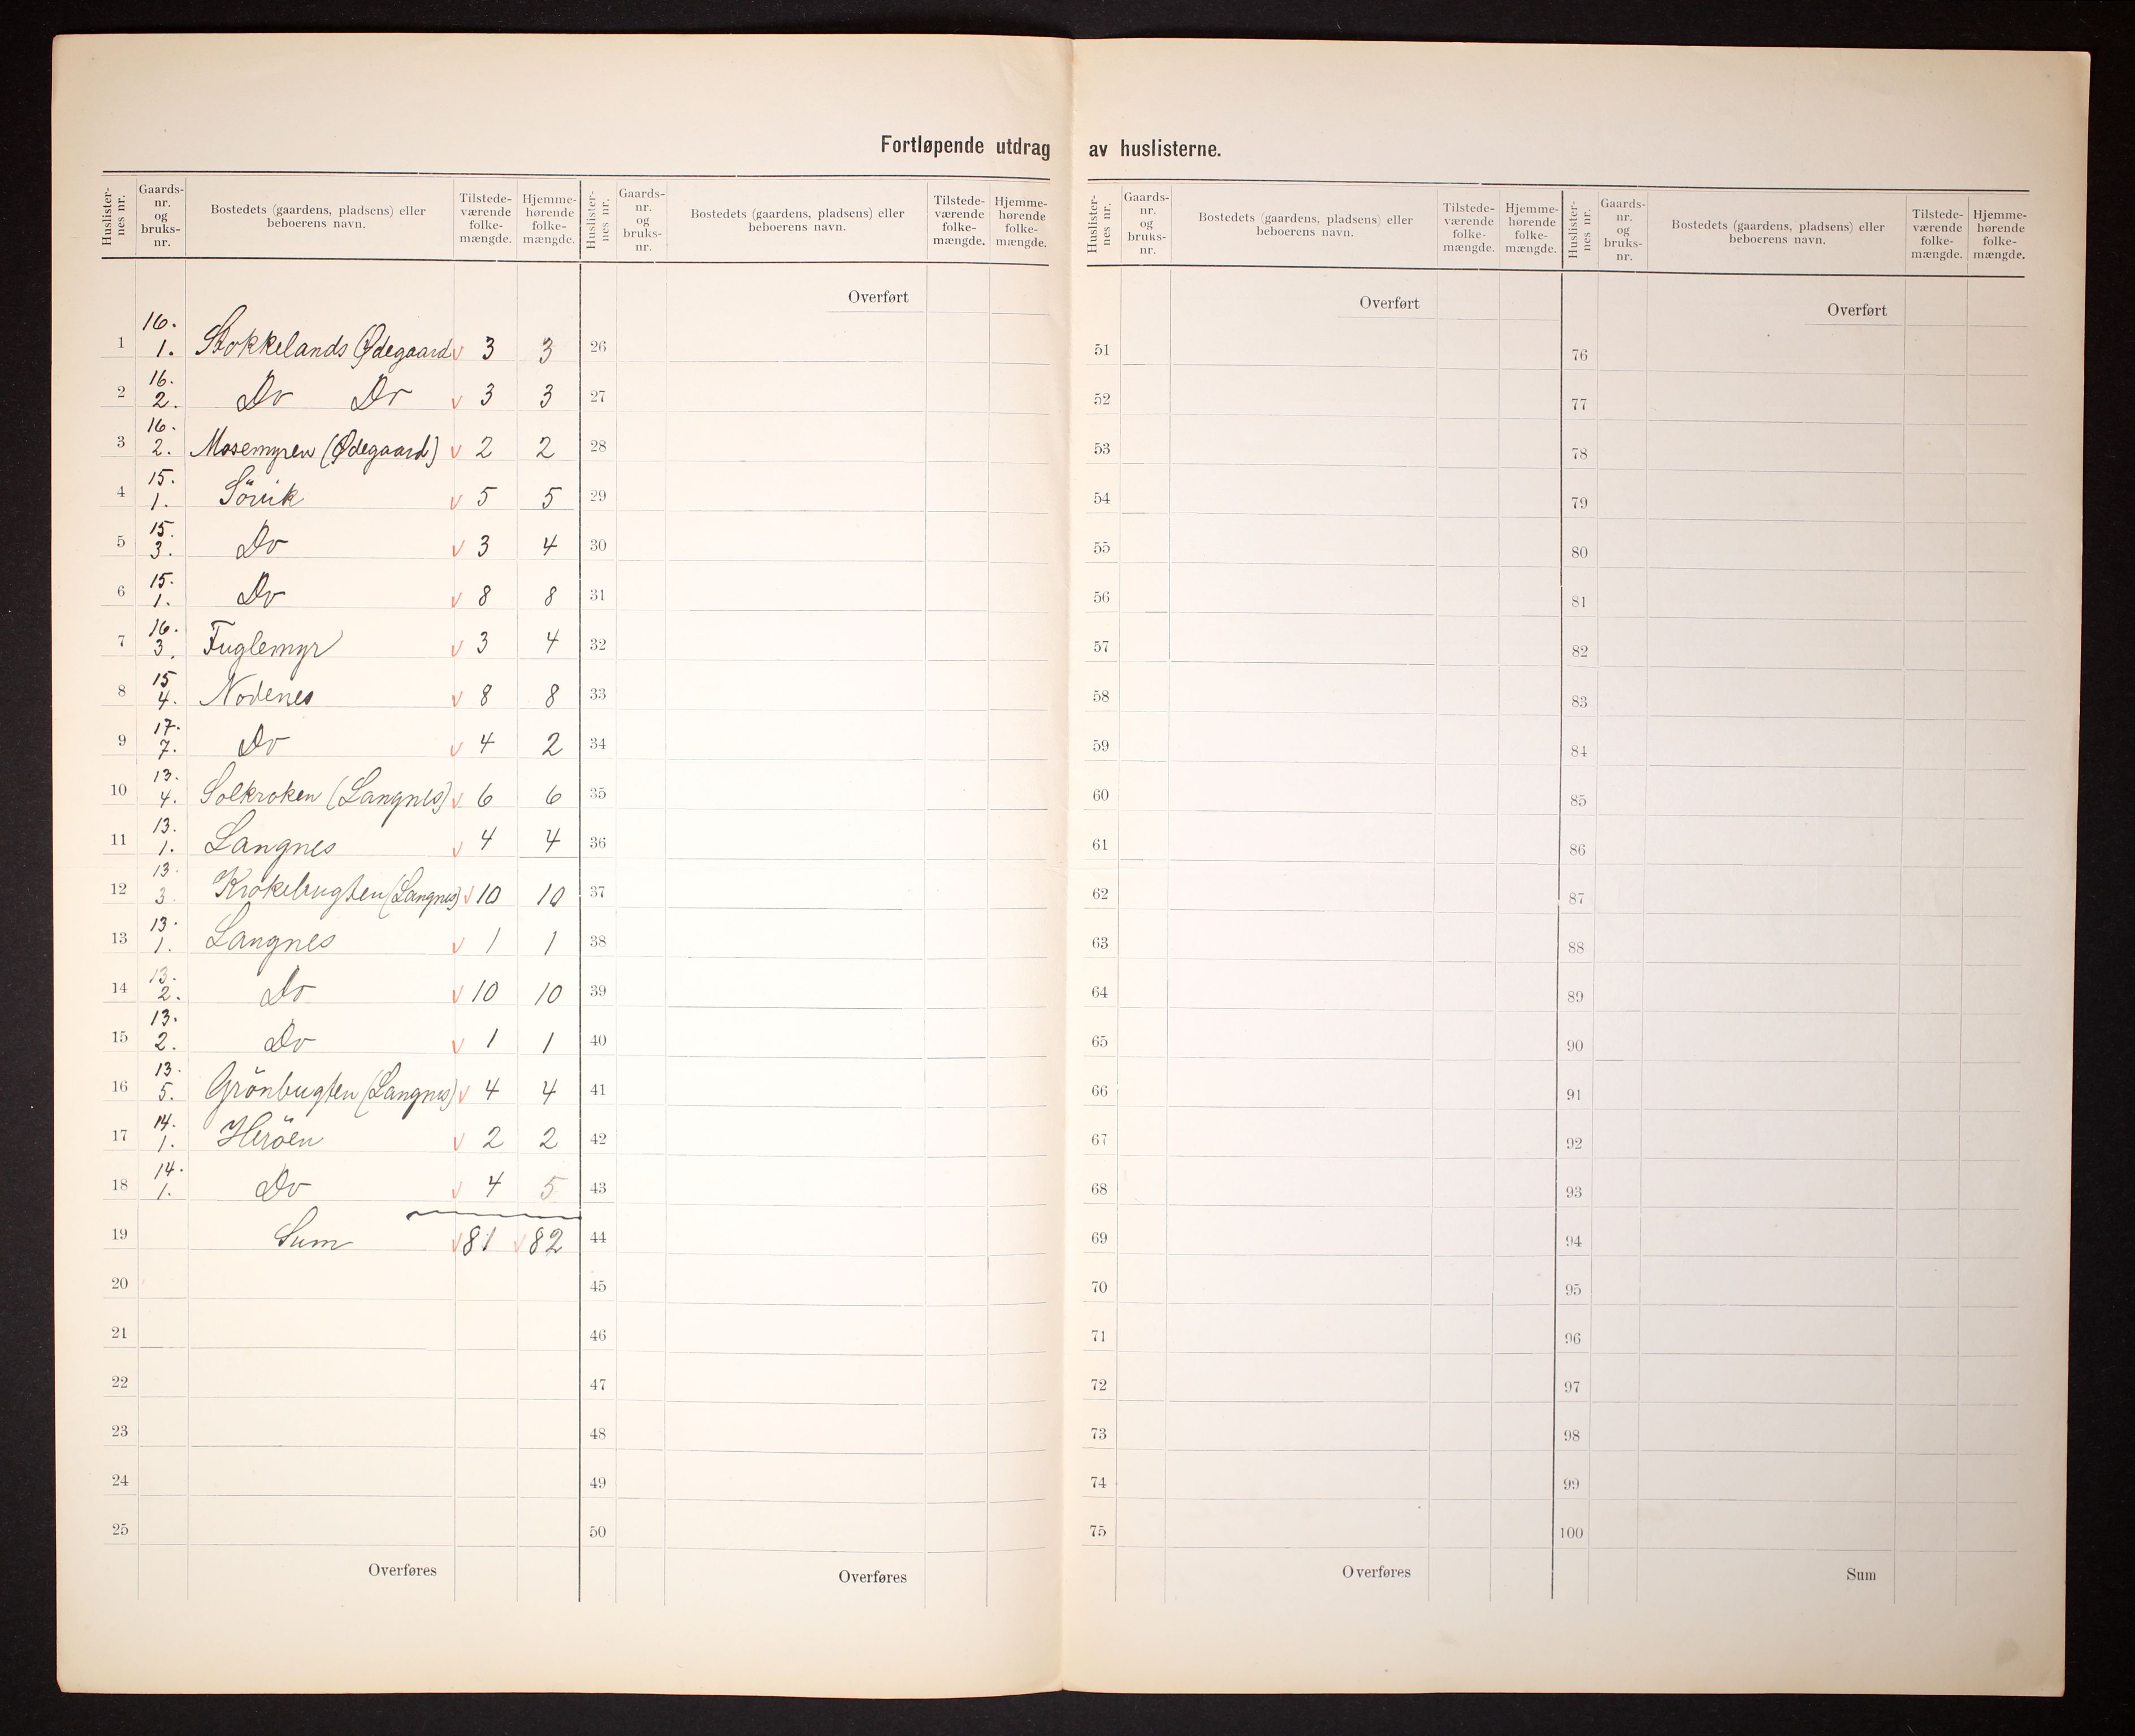 Fortløpende utdrag av huslisterne.
Huslister-nes nr. Gaards-nr. og bruks-nr. Bostedets (gaardens, pladsens) eller beboerens navn. Tilstede-værende folke-mængde. Hjemme-hørende folke-mængde.
1 16. 1. Stokkelands Ødegaard v 3 3
2 16. 2. Do Do v 3 3
3 16. 2. Mosemyren (Ødegaard) v 2 2
4 15. 1. Sövik v 5 5
5 15. 3. Do v 3 4
6 15. 1. Do v 8 8
7 16. 3. Fuglemyr v 3 4
8 15 4. Nodenes v 8 8
9 17. 7. Do v 4 2
10 13. 4. Solkroken (Langnes) v 6 6
11 13. 1. Langnes v 4 4
12 13. 3 Krokebugten (Langnes) v 10 10
13 13. 1. Langnes v 1 1
14 13. 2. Do v 10 10
15 13. 2. Do v 1 1
16 13. 5. Grönbugten (Langnes) v 4 4
17 14. 1. Heröen v 2 2
18 14. 1. Do v 4 5
19 Sum v 81 v 82
20
21
22
23
24
25
Overføres
Huslister-nes nr. Gaards-nr. og bruks-nr. Bostedets (gaardens, pladsens) eller beboerens navn. Tilstede-værende folke-mængde. Hjemme-hørende folke-mængde.
Overført
26
27
28
29
30
31
32
33
34
35
36
37
38
39
40
41
42
43
44
45
46
47
48
49
50
Overføres
Huslister-nes nr. Gaards-nr. og bruks-nr. Bostedets (gaardens, pladsens) eller beboerens navn. Tilstede-værende folke-mængde. Hjemme-hørende folke-mængde.
Overført
51
52
53
54
55
56
57
58
59
60
61
62
63
64
65
66
67
68
69
70
71
72
73
74
75
Overføres
Huslister-nes nr. Gaards-nr. og bruks-nr. Bostedets (gaardens, pladsens) eller beboerens navn. Tilstede-værende folke-mængde. Hjemme-hørende folke-mængde.
Overført
76
77
78
79
80
81
82
83
84
85
86
87
88
89
90
91
92
93
94
95
96
97
98
99
100
Sum